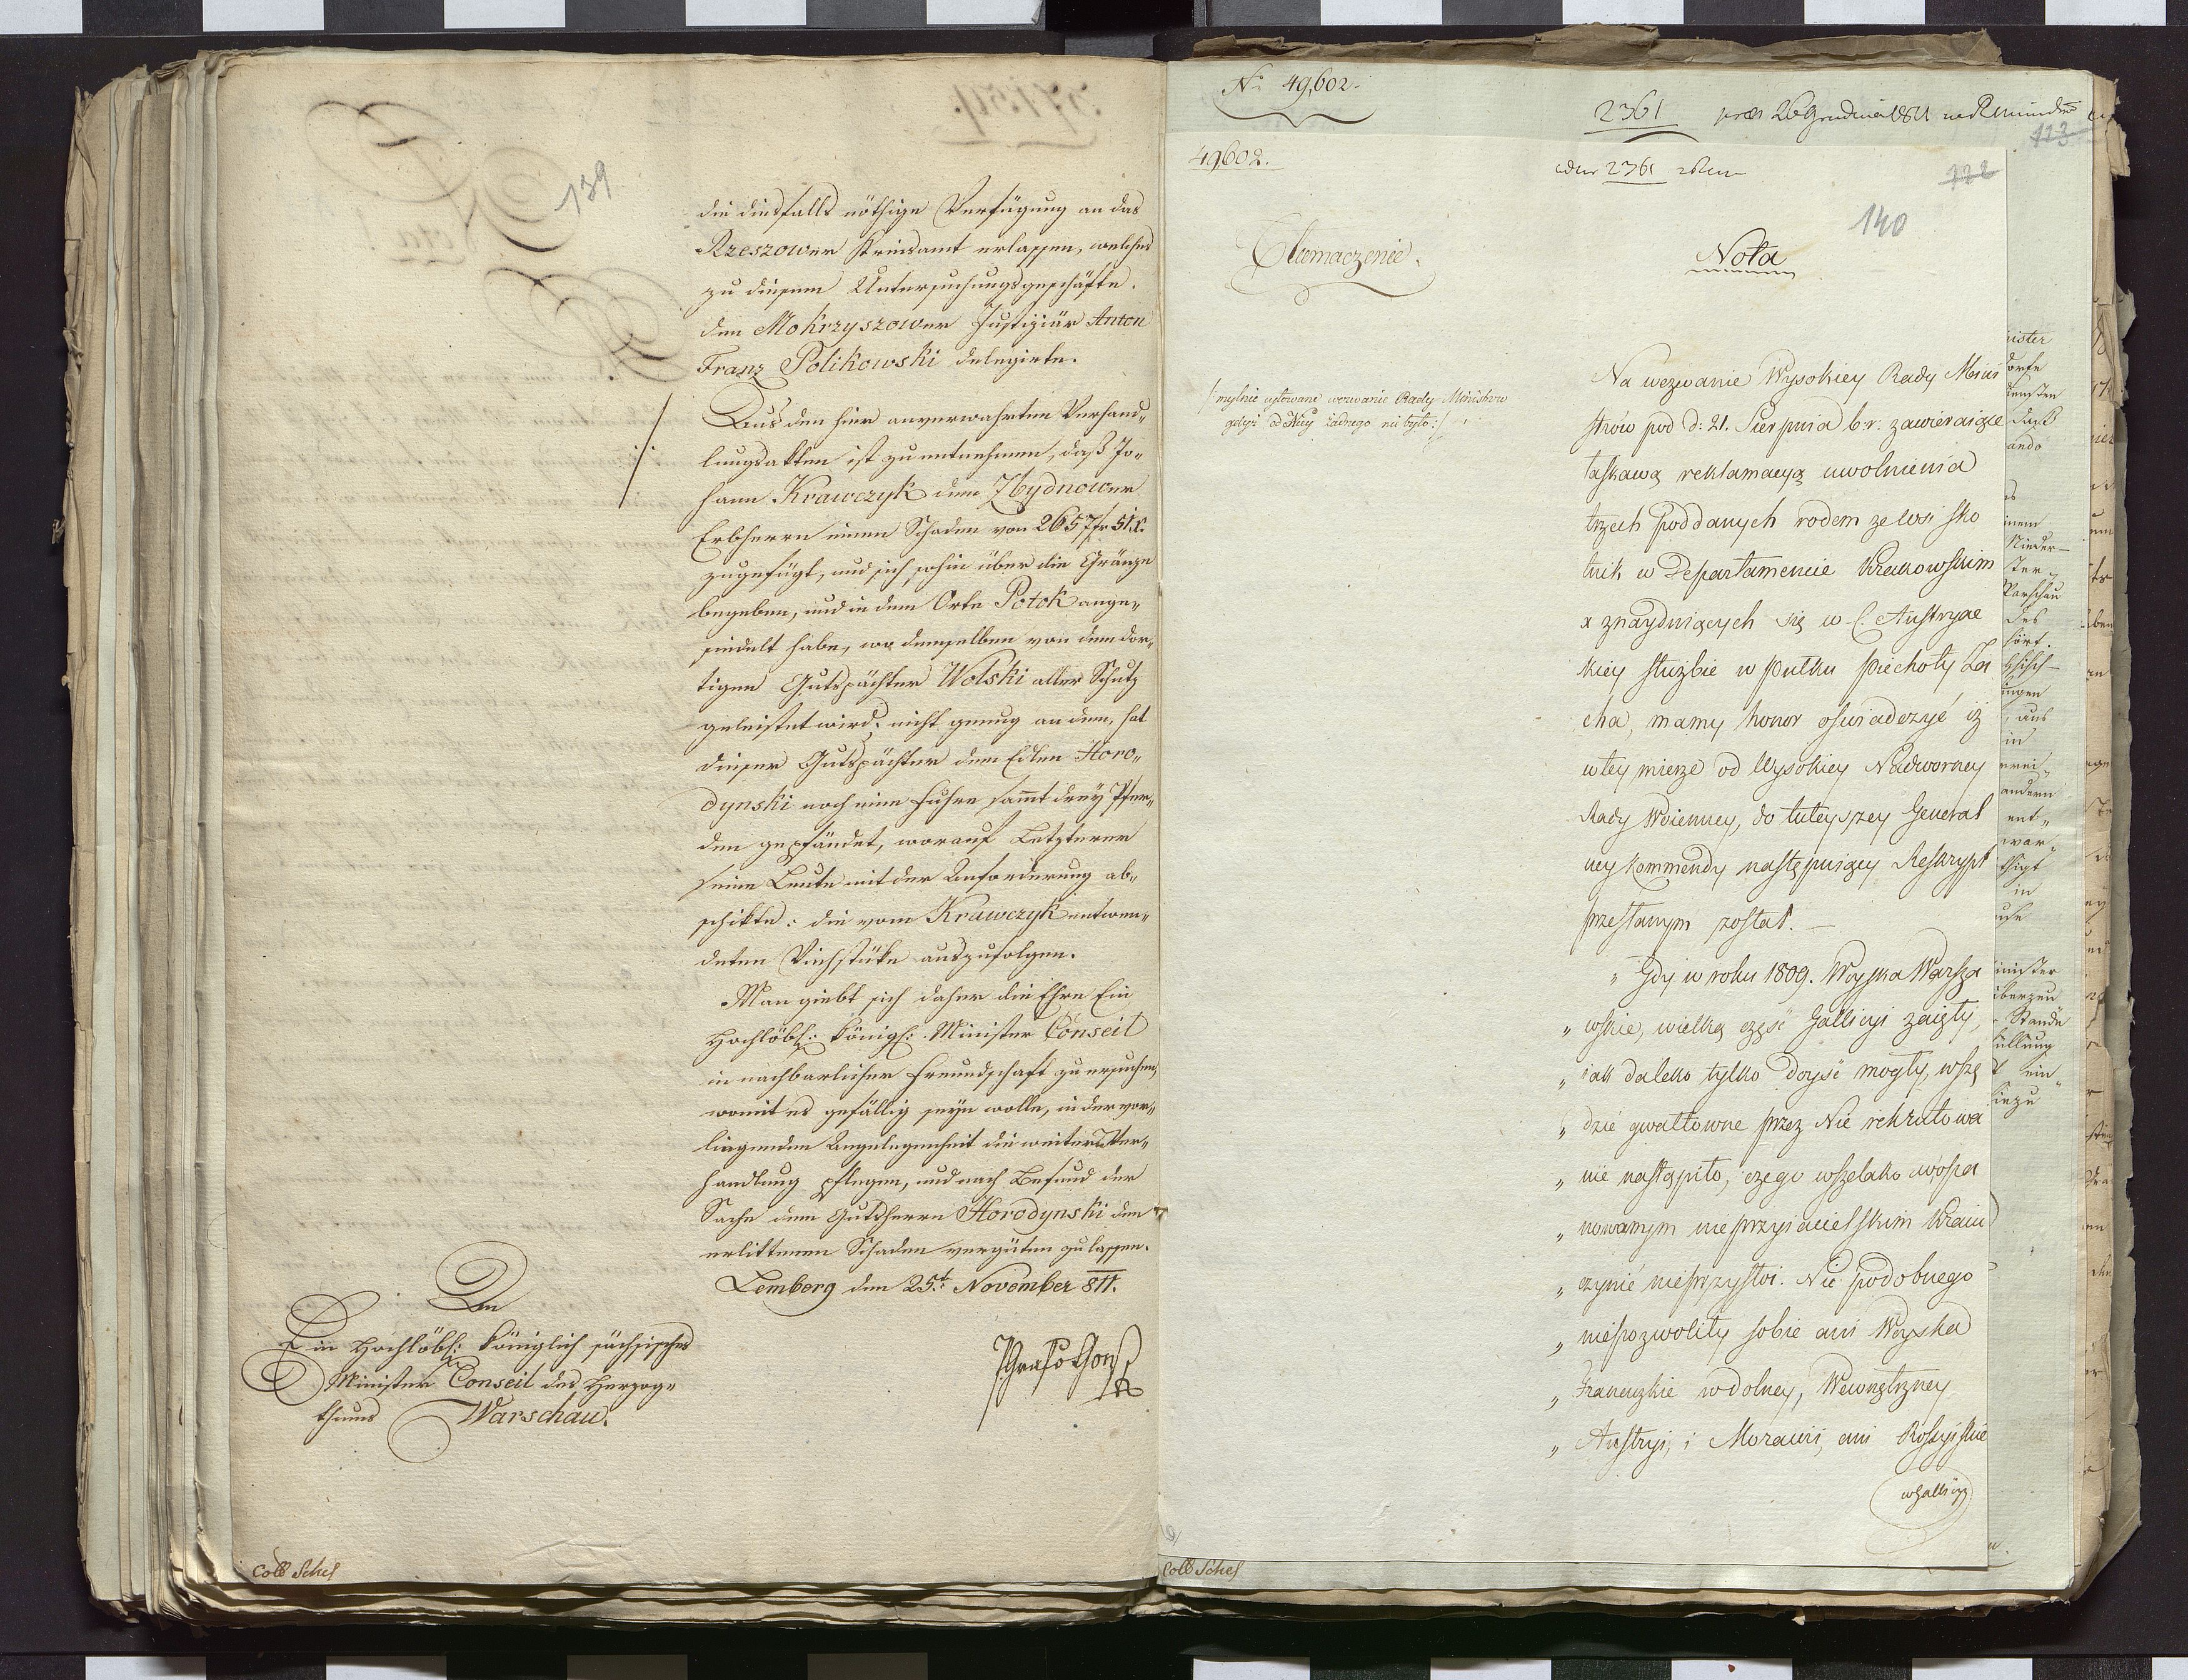 139
die diesfalls nöthige Verfügung an das
Rzeszower Kreisamt erlassen, welches
zu diesem Untersuchungsgeschäfte
den Mokrzyszower Justiziär Anton
Franz Polikowski delegirte.
Aus den hier anverwahrten Verhand„
lungsakten ist zu entnehmen, daß Jo„
hann Krawczyk dem Zbydnower
Erbherrn einen Schaden von 2657 fr 51 x.
zugefügt, und sich sohin über die Gränze
begeben, und in dem Orte Potok ange„
siedelt habe, wo demselben von dem dor„
tigen Gutspächter Wolski aller Schutz
geleistet wird; nicht genug an dem, hat
dieser Gutspächter dem Edlen Horo„
dynski noch eine Fuhre sammt drey Pfer„
den gepfändet, worauf Letzterer
seine Leute mit der Anforderung ab„
schikte: die vom Krawczyk entwen„
deten Viehstüke auszufolgen.
Man giebt sich daher die Ehre Ein
Hochlöbl: Königl: Minister Conseil
in nachbarlicher Freundschaft zu ersuchen,
womit es gefällig seyn wolle, in der vor„
liegenden Angelegenheit die weitere Ver„
handlung pflegen, und nach Befund der
Sache dem Gutsherrn Horodynski den
erlittenen Schaden vergüten zu lassen.
Lemberg den 25t. November 811.
An
Ein Hochlöbl: Königlich sächsisches
Minister Conseil des Herzog„
thums Warschau.
Coll Schef
No 49,602.
2361 26 Grudnia 1811
123
49602.
2361
122
140
Tłumaczenie.
Nota
/: mylnie cytowane wezwanie Rady Ministrów
gdyż od Niey żadnego nie było :/
Na wezwanie Wysokiey Rady Mini
strów pod d: 21. Sierpnia b:r: zawieraiące
łaskawą reklamacyą uwolnienia
trzech poddanych rodem ze wsi Sko
tnik w Departamencie Krakowskim
a znayduiących się w C. Austryac
kiey służbie w pułku piechoty Za
cha, mamy honor oświadczyć iż
w tey mierze od Wysokiey Nadworney
Rady Woienney, do tuteyszey General
ney Kommendy następuiący Reskrypt
przesłanym został. —
„ Gdy w roku 1809. Woyska Warsza
„ wskie, wielką część Gallicyi zaięły,
„ iak daleko tylko doyść mogły, wszę
„ dzie gwałtowne przez Nie rekrutowa
„ nie nastąpiło, czego wszelako w opa
„ nowanym nieprzyiacielskim Kraiu
„ czynić nieprzystoi. Nic podobnego
„ niepozwoliły sobie ani Woyska
„ Francuzkie w dolney, Wewnętrzney
„ Austryi, i Morawii, ani Rossyiskie
w Gallicyi
Coll Schef